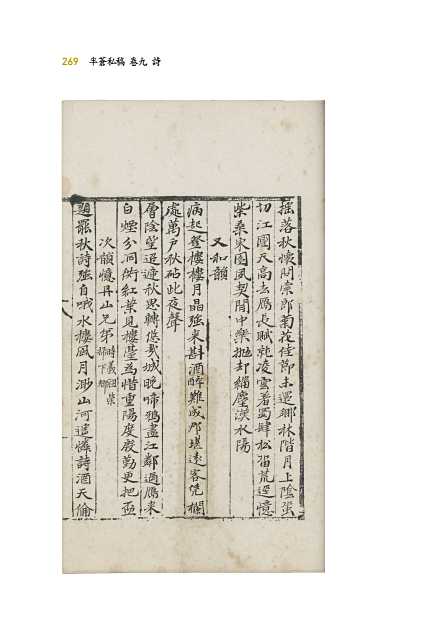 269 半蒼私稿 卷九 詩
搖落秋懷問索郎菊花佳節未還鄉林階月上陰蛩
切江國天高去雁長賦就凌雲看蜀肆松留荒逕憶
柴桑家園風契閒中樂拋却緇塵漢水陽
又和韻
病起登樓樓月晶強來斟酒醉難成那堪遠客凭欄
處萬戶秋砧此夜聲
層陰望迢遞秋思轉悠哉城晚啼鴉盡江鄰過鴈來
白煙分洞所紅葉見樓臺為惜重陽度慇懃更把盃
次韻憶具山兄弟
題罷秋詩強自哦水樓風月渺山河遙憐詩酒天倫